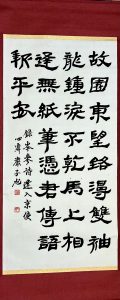 故園東望路漫雙袖
龍鐘淚不乾馬上相
逢無紙筆憑君傳語
報平安
錄岑參詩逢入京使